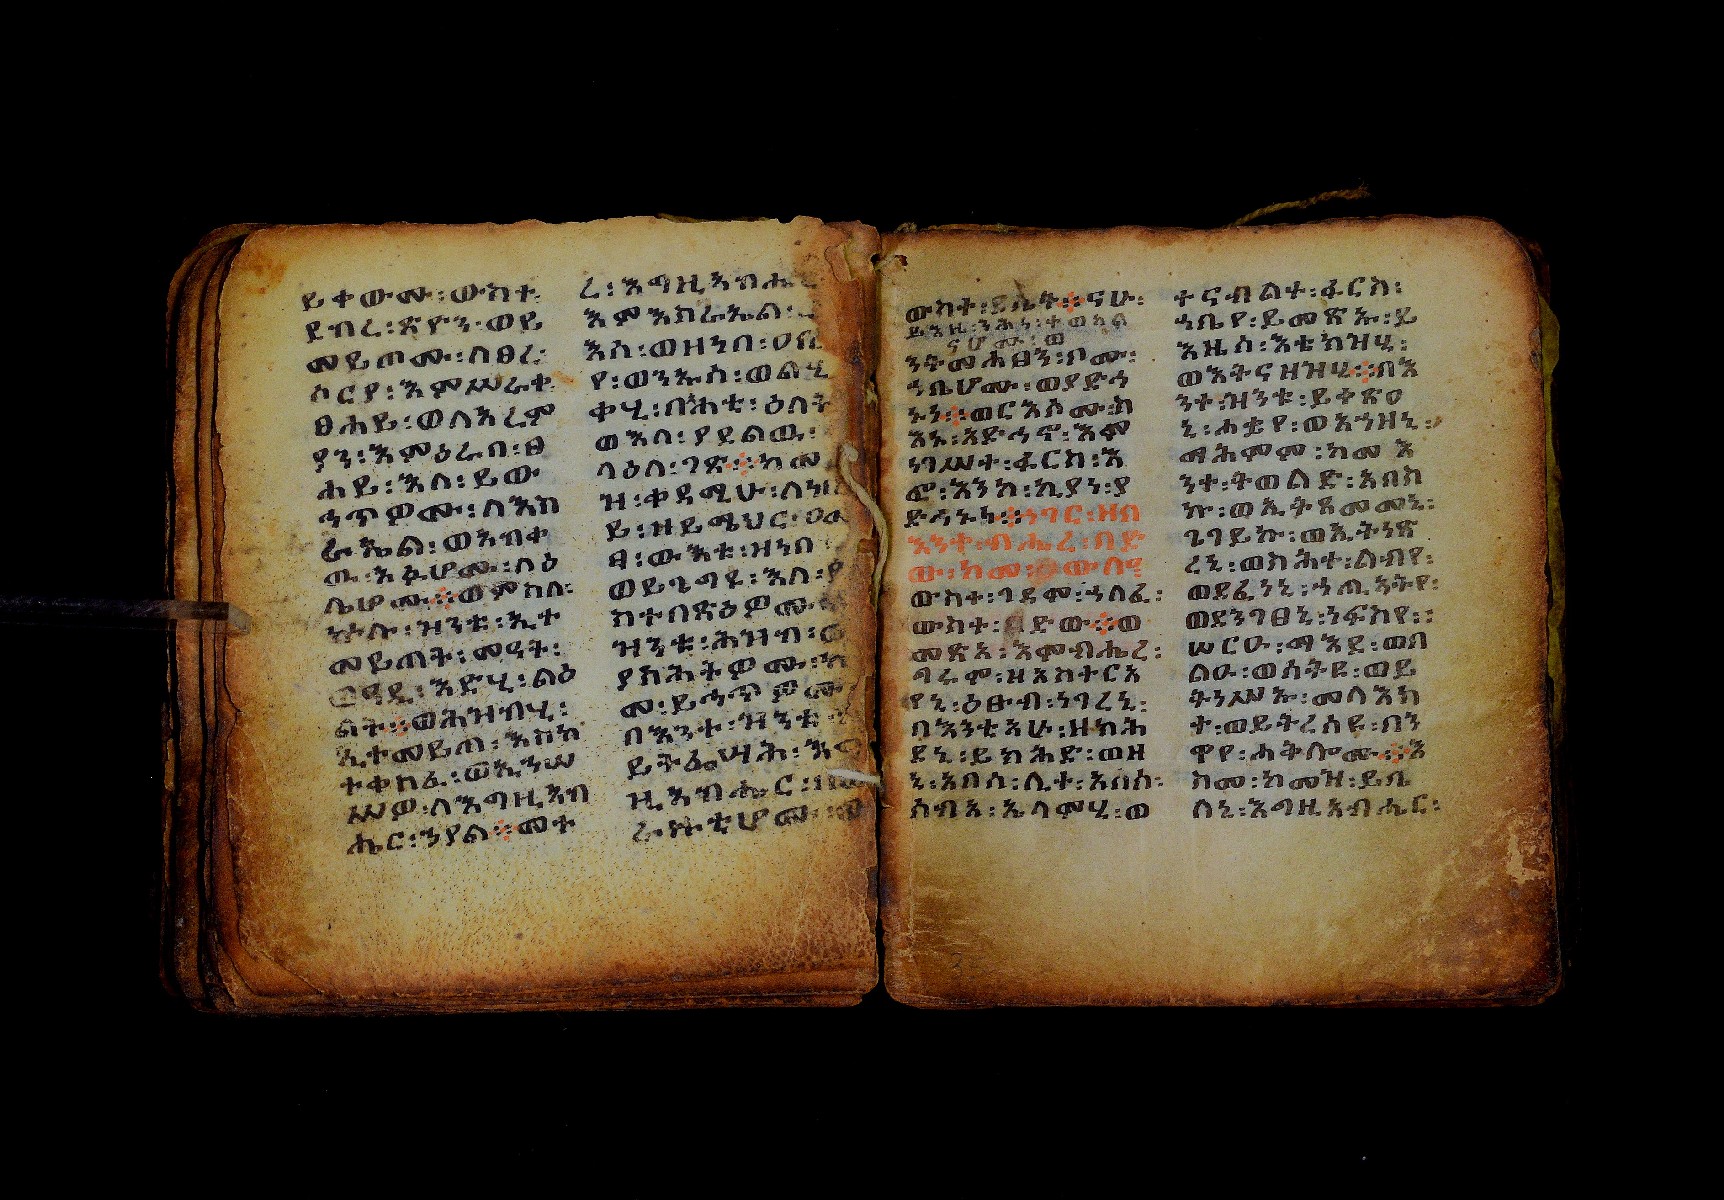 ይቀውሙ፡ውስተ፡
ደብረ፡ጽዮን፡ወይ
መይጠሙ፡ለፀረ፡
ሶርያ፡እምሥራቀ
ፀሐይ፡ወለአረም
ያን፡እምዕራበ፡ፀ
ሐይ፡እለ፡ይው
ኅጥዎሙ፡ለእስ
ራኤል፡ወአብቀ
ዉ፡አፉሆሙ፡ለዕ
ሌሆሙ፨ወምስለ፡
ኵሉ፡ዝንቱ፡ኢተ
መይጠት፡መዓት፡
ወዓዲ፡እድሂ፡ልዕ
ልት፨ወሕዝብሂ፡
ኢተመይጠ፡እስከ
ተቀስፈ፡ወኢኀሠ
ሥዎ፡ለእግዚአብ
ሔር፡ኀያል፨መተ
ረ፡እግዚአብሔር
እምእስራኤል፡
እስ፡ወዘነበ፡ዐቢ
የ፡ወንኡስ፡ወልሂ
ቀሂ፡በአሕቲ፡ዕለት
ወእለ፡ያደልዉ፡
ላዕለ፡ገጽ፨ከመ
ዝ፡ቀዳሚሁ፡ለነቢ
ይ፡ዘይሜህር፡ዐመ
ፀ፡ውእቱ፡ዝነበ
ወይጌግዩ፡እለ፡ያ
ስተበጽዕዎሙ፡
ዝንቱ፡ሕዝብ፡
ያስሕትዎሙ፡ከ
መ፡ይኅጥዎሙ
በእንተ፡ዝንቱ፡
ይትፌሣሕ፡እግ
ዚአብሔር፡በወ
ራዙቲሆሙ፡
ውስተ፡ይሊት፨ናሁ፡
ይእዜ፡ንሕነ፡ተወከል
ናሆሙ፡ወ
ንትመሐፀን፡ቦሙ፡
ኀቤሆሙ፡ወያድኅ
ኑነ፨ወርእሶሙ፡ስ
እኑ፡አድኅኖ፡እም
ነገሥተ፡ፋርስ፡እ
ፎ፡እንከ፡ኪያነ፡ያ
ድኅኑነ፨ነገር፡ዘበ
እንተ፡ብሔረ፡በድ
ው፡ከመ፡ዐውሎ
ውስተ፡ገዳም፡ኀለፈ፡
ውስተ፡በድው፨ወ
መጽአ፡እምብሔረ፡
ግሩም፡ዘአስተርአ
የኒ፡ዕፁብ፡ነገረኒ፡
በእንቲአሁ፡ዘክሕ
ደኒ፡ይክሕድ፡ወዘ
ኒ፡አበሰ፡ሊተ፡አበሰ፡
ሶብአ፡ኤላምሂ፡ወ
ተናብልተ፡ፋርስ፡
ኀቤየ፡ይመጽኡ፡ይ
እዜሰ፡እቴክዝሂ፡
ወእትናዘዝሂ፨በእ
ንተ፡ዝንቱ፡ይቀጽዐ
ኒ፡ሐቌየ፡ወአኀዘኒ፡
ማሕምም፡ከመ እ
ንተ፡ትወልድ፡አበስ
ኩ፡ወኢትጸመመኒ፡
ጌገይኩ፡ወኢትነጽ
ረኒ፡ወስሕተ፡ልብየ፡
ወደፈነኒ፡ኀጢአትየ፡
ወደንገፀኒ፡ነፍስየ፡፡
ሠርዑ፡ማእደ፡ወበ
ልዑ፡ወስትዩ፡ወይ
ትነሥኡ፡መላእክ
ት፡ወይትረሰዩ፡በን
ዋየ፡ሐቅሎሙ፨እ
ስመ፡ከመዝ፡ይቤ
ለኒ፡እግዚአብሔር፡